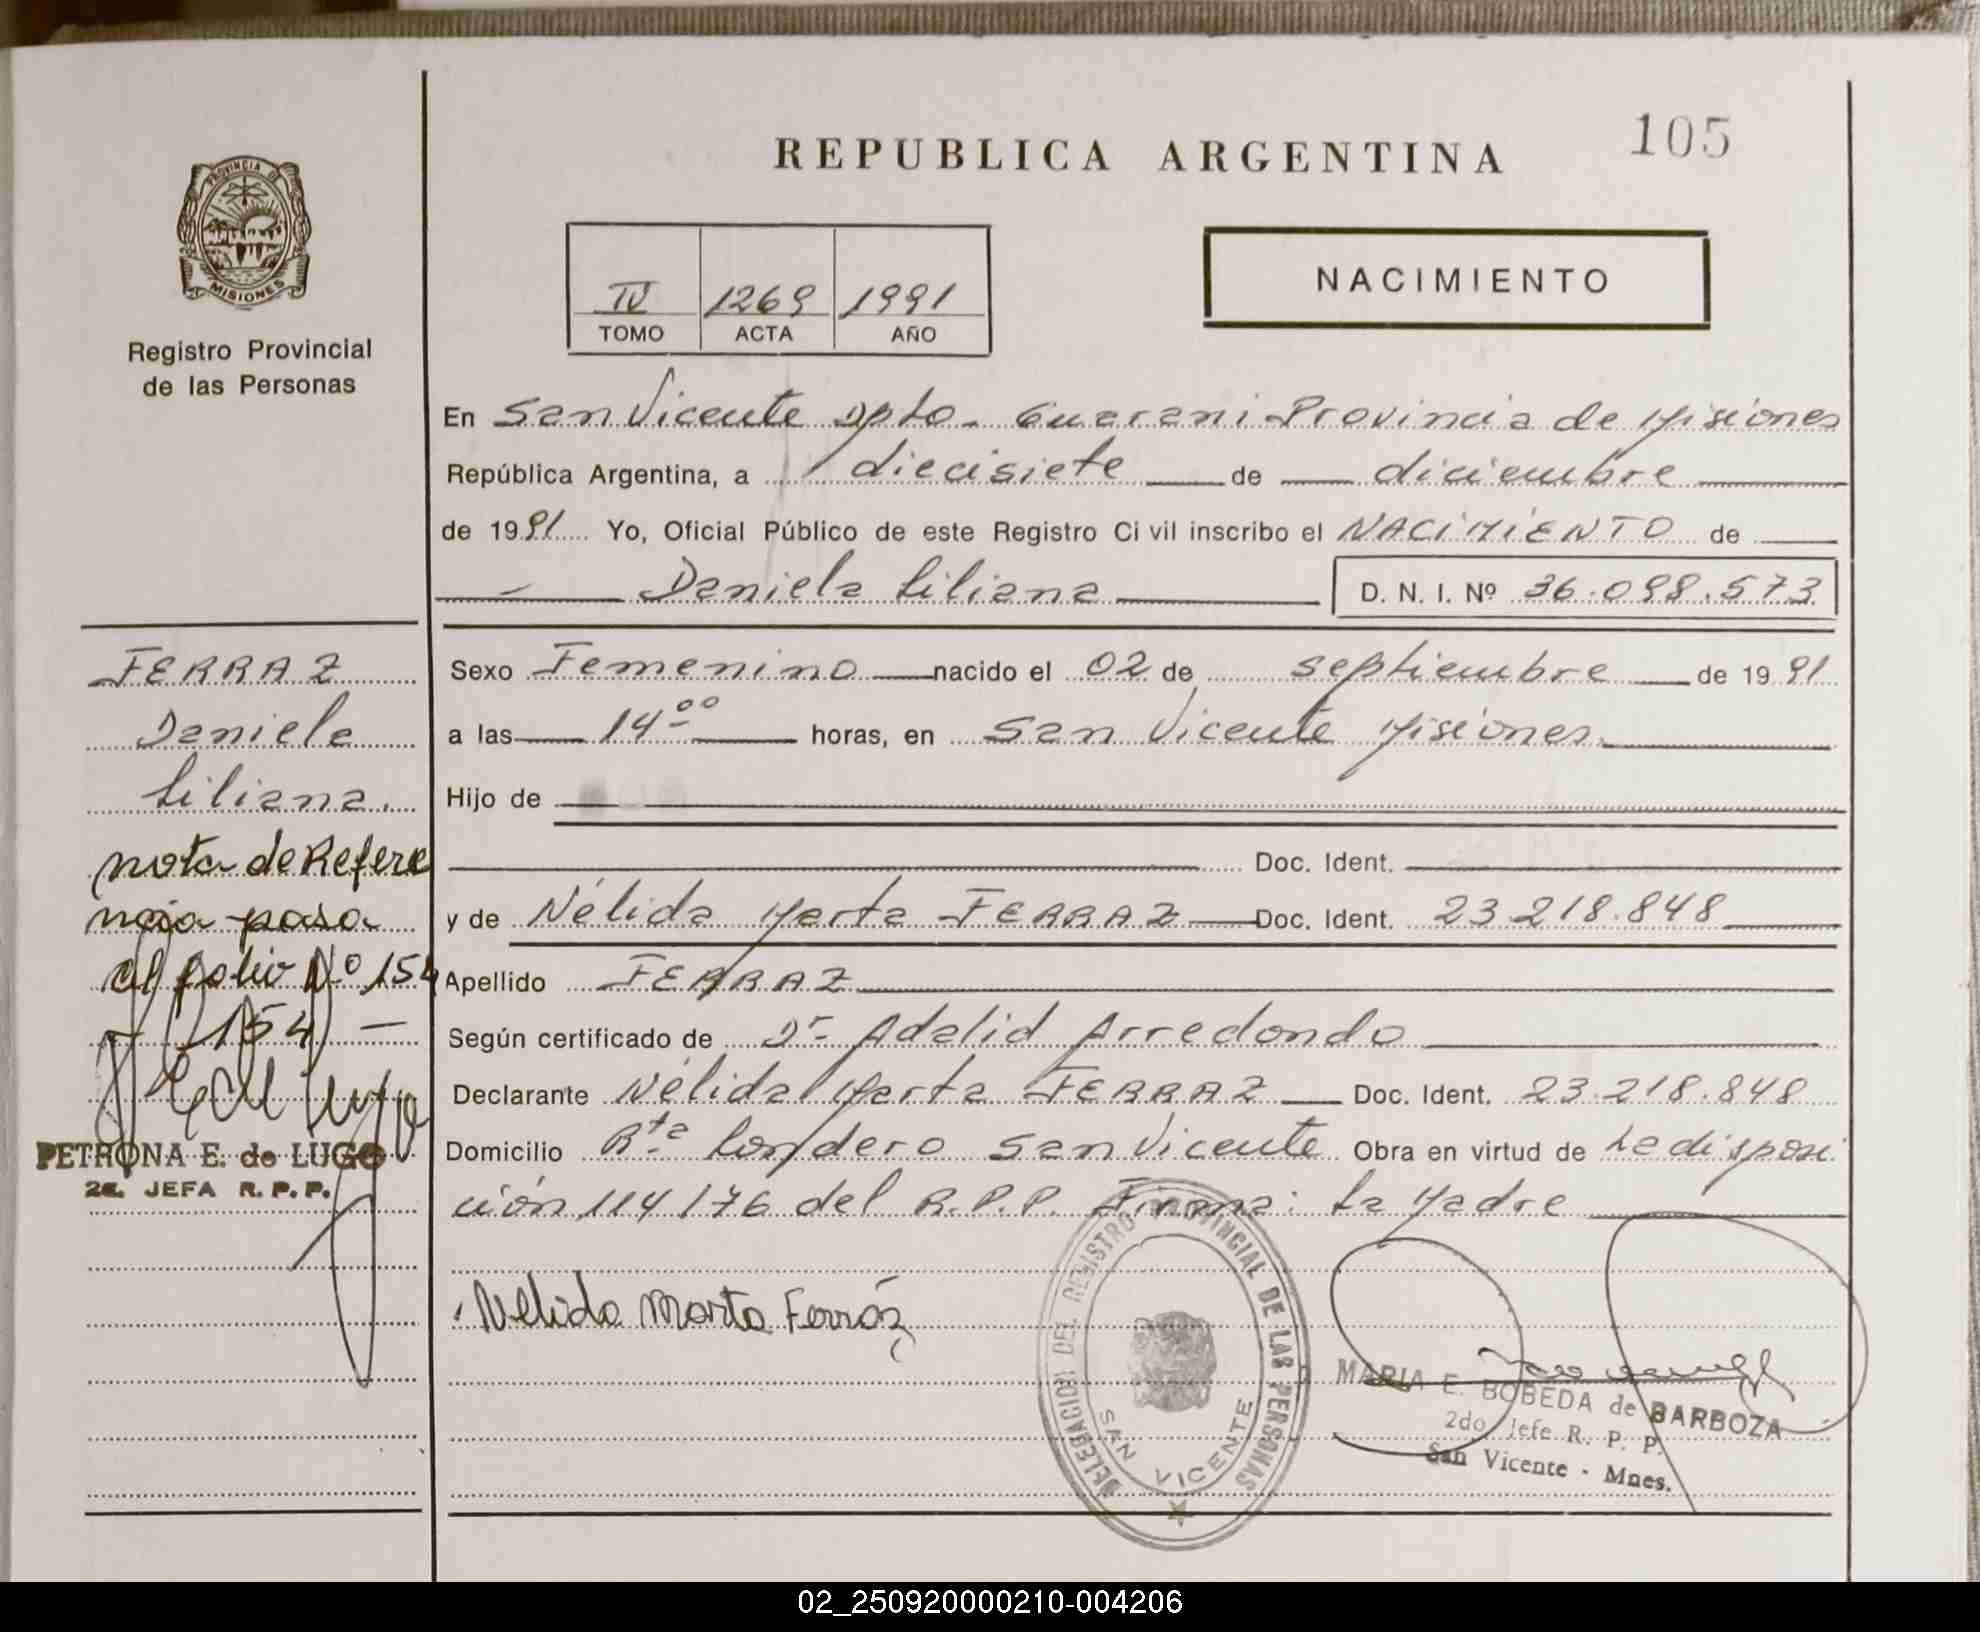 105
REPUBLICA ARGENTINA
PROVINCIA DE
MISIONES
Registro Provincial
de las Personas
IV 1269 1991
TOMO ACTA AÑO
NACIMIENTO
En San Vicente Dpto. Guarani Provincia de Misiones
República Argentina, a diecisiete de diciembre
de 1991 Yo, Oficial Público de este Registro Civil inscribo el NACIMIENTO de
Daniela Liliana D. N. I. Nº 36.098.573
Sexo Femenino nacido el 02 de septiembre de 1991
a las 14 00 horas, en San Vicente Misiones
Hijo de
Doc. Ident.
y de Nélida Marta FERRAZ Doc. Ident. 23.218.848
Apellido FERRAZ
Según certificado de Dr. Adalid Arredondo
Declarante Nélida Marta FERRAZ Doc. Ident. 23.218.848
Domicilio Rta. Londero San Vicente Obra en virtud de La disposi
ción 114/76 del R.P.P. Firma: La Madre
Nelida Marta Ferráz
DELEGACION DEL REGISTRO PROVINCIAL DE LAS PERSONAS
SAN VICENTE
MARIA E. BOBEDA de BARBOZA
2do Jefe R. P. P.
San Vicente - Mnes.
FERRAZ
Daniela
Liliana.
nota de Refere
ncia pasa
al folio Nº 154
154 —
PETRONA E. de LUGO
2a. JEFA R. P. P.
02_250920000210-004206